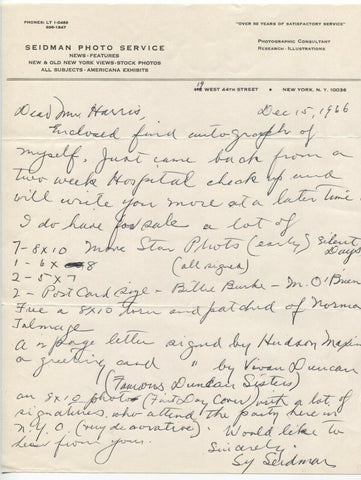 PHONES: LT 1-0469
"OVER 50 YEARS OF SATISFACTORY SERVICE"
SEIDMAN PHOTO SERVICE
NEWS - FEATURES
NEW & OLD NEW YORK VIEWS-STOCK PHOTOS
ALL SUBJECTS - AMERICANA EXHIBITS
PHOTOGRAPHIC CONSULTANT
RESEARCH - ILLUSTRATIONS
WEST 44TH STREET • NEW YORK, N. Y. 10036
Dec 15, 1966
Dear Mr. Harris,
Enclosed find autograph of
myself. Just came back from a
two week Hospital check up and
will write you more at a later time.
I do have for sale a lot of
7 - 8x10 Movie Star Photos (early) Silent Days
1 - 6 x 8 (all signed)
2 - 5 x 7
2 - Post Card size - Billie Burke - M. O'Brien
Free a 8x10 torn and patched of Norma
Talmage
A 2 page letter signed by Hudson Maxim
a greeting card " by Vivian Duncan
(Famous Duncan Sisters)
an 8x10 photo (First Day Cover) with a lot of
signatures who attend the party here in
N.Y.C. (very decorative). Would like to
hear from you.
Sincerely.
Sy Seidman